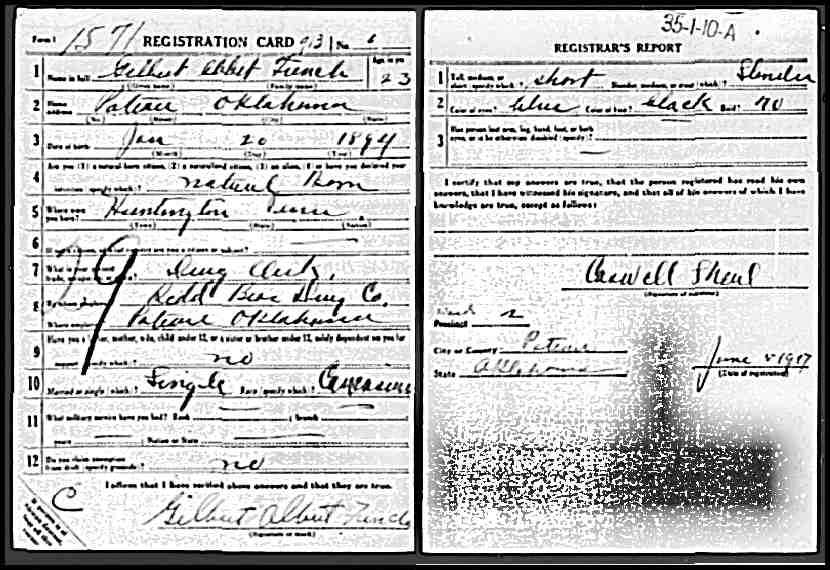 Form 1 1571 REGISTRATION CARD 913 No. 6
1 Name in full Gilbert Abbit French Age, in yrs. 23
(Given name) (Family name)
2 Home address Poteau Oklahoma
(No.) (Street) (City) (State)
3 Date of birth Jan 20 1894
(Month) (Day) (Year)
4 Are you (1) a natural born citizen, (2) a naturalized citizen, (3) an alien, (4) or have you declared your
intention (specify which)? natural Born
5 Where were you born? Huntington
(Town) (State) (Nation)
6 If not a citizen, of what country are you a citizen or subject?
7 What is your present trade, occupation, or office? Drug Clerk.
29
8 By whom employed? Redd Bros Drug Co.
Where employed? Poteau Oklahoma
9 Have you a father, mother, wife, child under 12, or a sister or brother under 12, solely dependent on you for
support (specify which)? no
10 Married or single (which)? Single Race (specify which)? Caucasian
11 What military service have you had? Rank branch
years Nation or State
12 Do you claim exemption from draft (specify grounds)? no
I affirm that I have verified above answers and that they are true.
C
Gilbert Albert French
(Signature or mark)
35-1-10-A
REGISTRAR'S REPORT
1 Tall, medium, or short (specify which)? short Slender, medium, or stout (which)? Slender
2 Color of eyes? blue Color of hair? black Bald? no
3 Has person lost arm, leg, hand, foot, or both
eyes, or is he otherwise disabled (specify)?
I certify that my answers are true, that the person registered has read his own
answers, that I have witnessed his signature, and that all of his answers of which I have
knowledge are true, except as follows:
(Signature of registrar)
Precinct Ward 2
City or County Poteau
State Oklahoma
June 5 1917
(Date of registration)